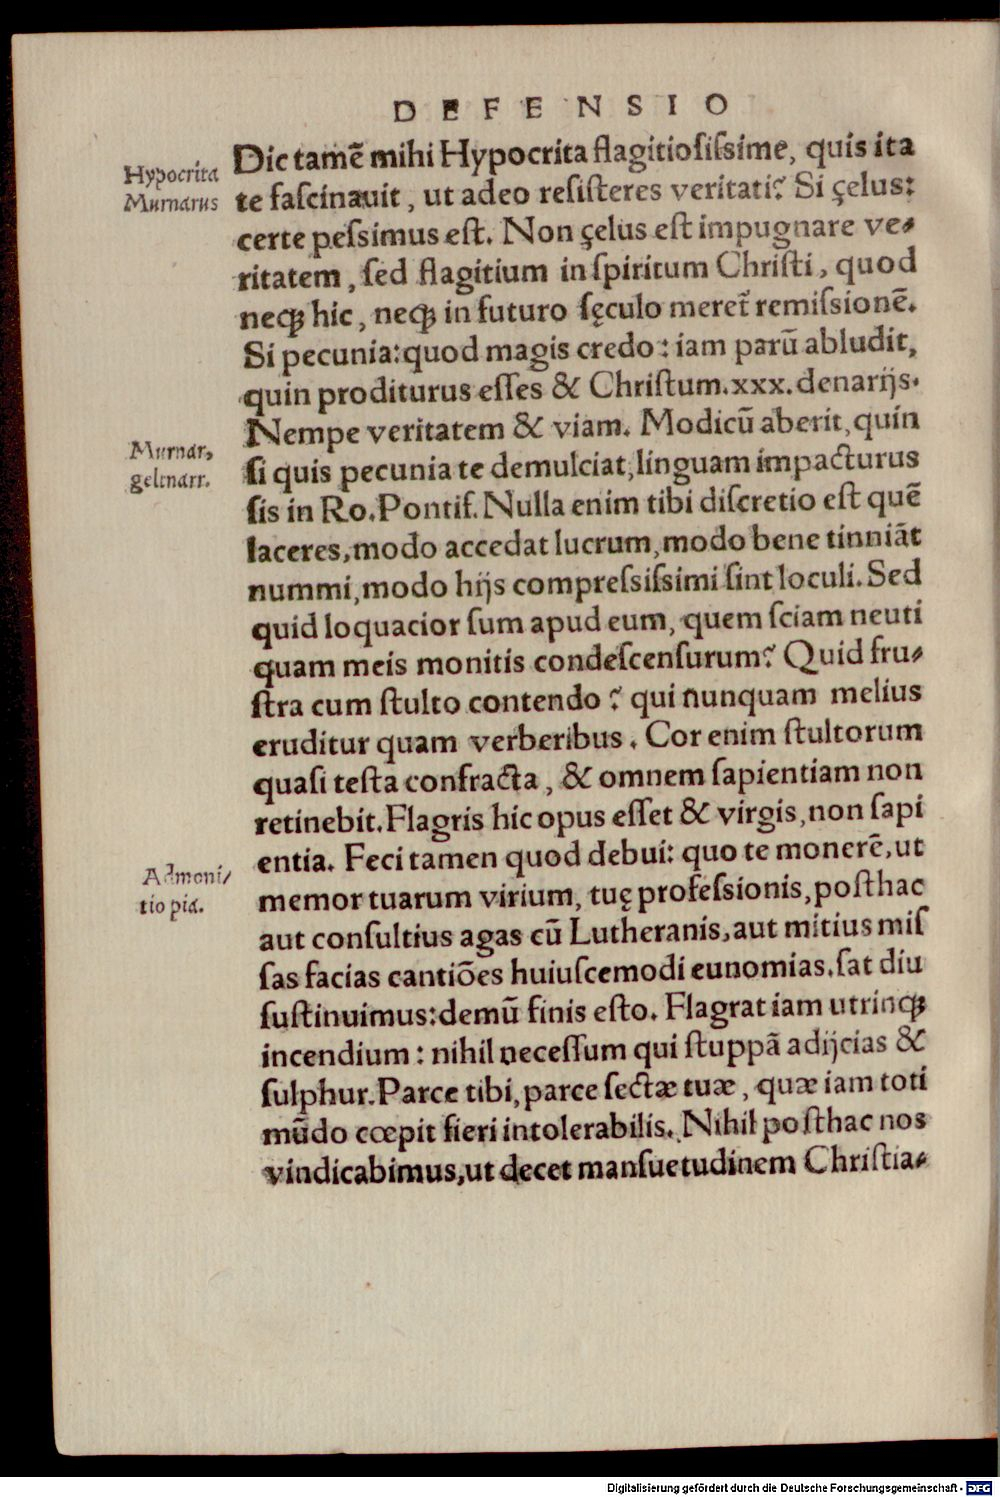 DEFENSIO
Hypocrita
Murnarus
Dic tamē mihi Hypocrita flagitiosiſsime, quis ita
te faſcinauit, ut adeo reſiſteres veritati? Si çelus:
certe peſsimus eſt. Non çelus eſt impugnare ve-
ritatem, ſed flagitium in ſpiritum Chriſti, quod
neqꝫ hic, neqꝫ in futuro ſęculo meret̃ remiſsionē.
Si pecunia: quod magis credo: iam parū abludit,
quin proditurus eſſes & Chriſtum.xxx.denarijs.
Nempe veritatem & viam. Modicū aberit, quin
Murnar,
geltnarr.
ſi quis pecunia te demulciat, linguam impacturus
ſis in Ro.Pontif. Nulla enim tibi diſcretio eſt quē
laceres, modo accedat lucrum, modo bene tinniāt
nummi, modo hijs compreſsiſsimi ſint loculi. Sed
quid loquacior ſum apud eum, quem ſciam neuti
quam meis monitis condeſcenſurum? Quid fru-
ſtra cum ſtulto contendo? qui nunquam melius
eruditur quam verberibus. Cor enim ſtultorum
quaſi teſta confracta, & omnem ſapientiam non
retinebit. Flagris hic opus eſſet & virgis, non ſapi
entia. Feci tamen quod debui: quo te monerē, ut
Admoni/
tio pia.
memor tuarum virium, tuę profeſsionis, poſthac
aut conſultius agas cū Lutheranis, aut mitius miſ
ſas facias cantiōes huiuſcemodi eunomias. ſat diu
ſuſtinuimus: demū finis eſto. Flagrat iam utrinqꝫ
incendium: nihil neceſſum qui ſtuppā adijcias &
ſulphur. Parce tibi, parce ſectæ tuæ, quæ iam toti
mūdo cœpit fieri intolerabilis. Nihil poſthac nos
vindicabimus, ut decet manſuetudinem Chriſtia-
Digitalisierung gefördert durch die Deutsche Forschungsgemeinschaft - DFG